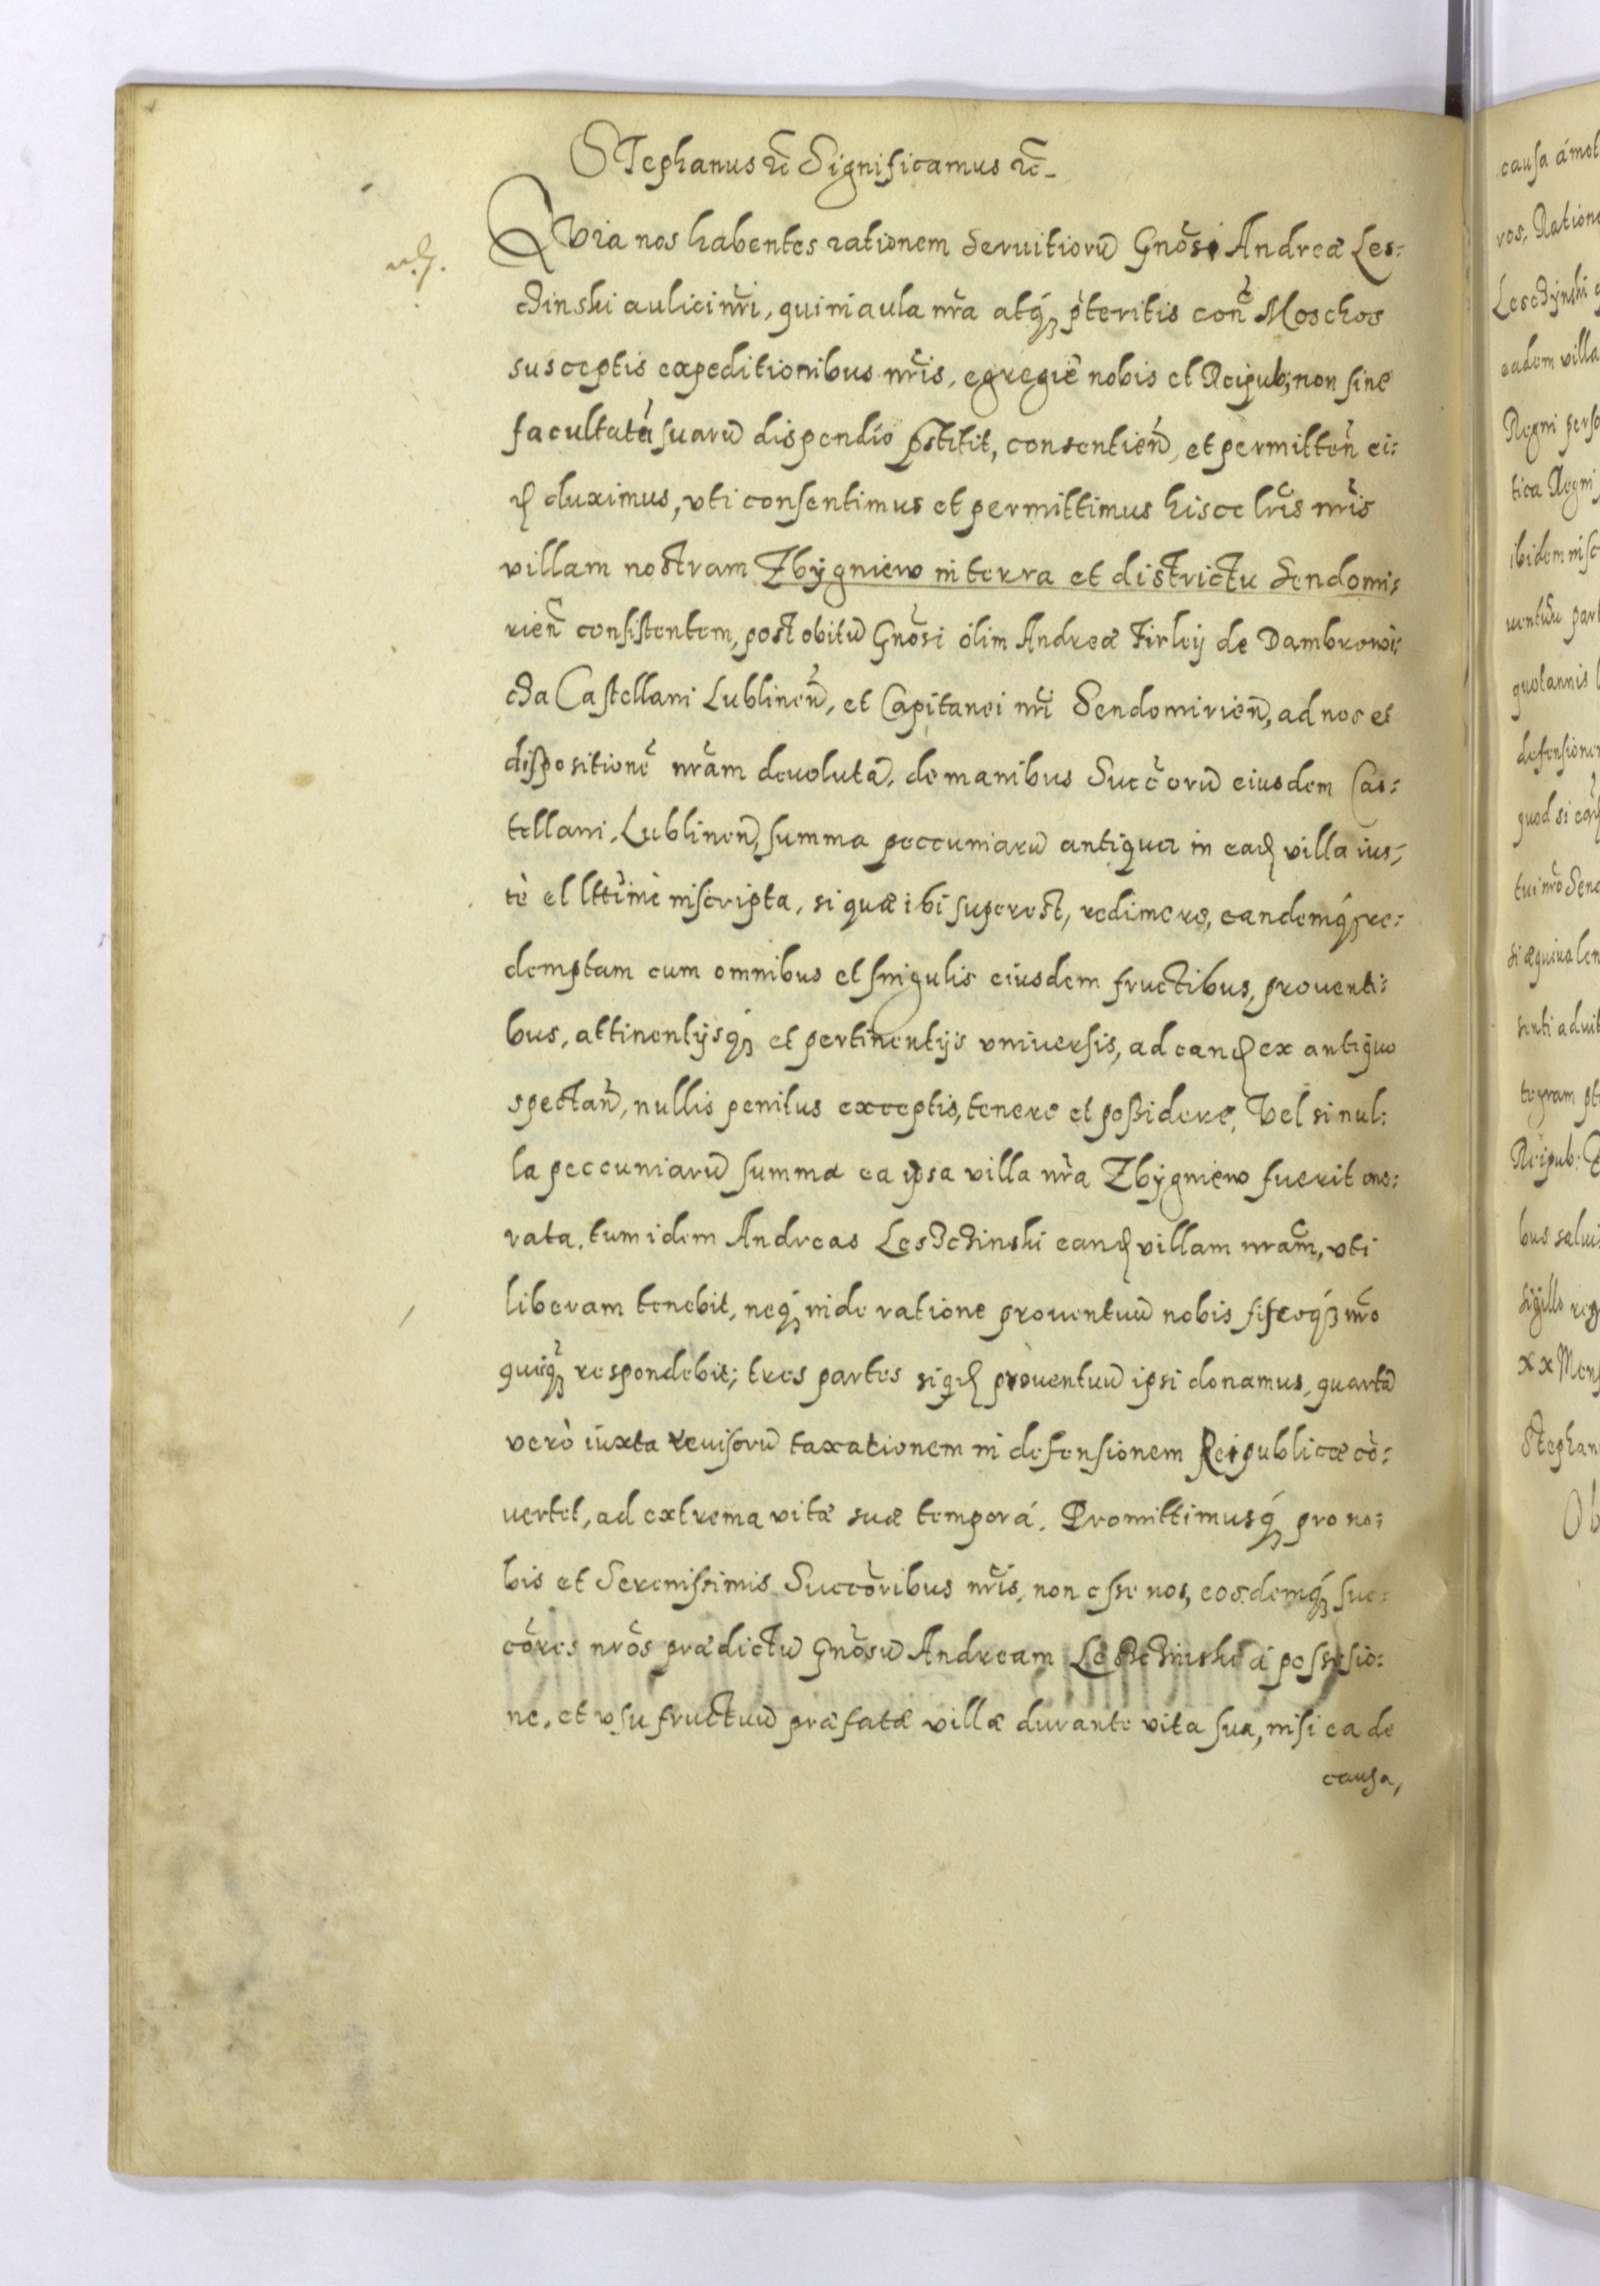 Stephanus etc Significamus etc
Quia nos habentes rationem Seruitiorū Gnōsi Andreæ Les:
chinski aulici nr̃i, qui in aula nr̃a atq́ꝫ p̀teritis con̄ Moschos
susceptis expeditionibus nr̃is, egregiè nobis et Reipub; non sine
facultatū suarū dispendio p̄stitit, consentien̄, et permitten̄ ei:
ꝺ duximus, vti consentimus et permittimus hisce lr̃is nr̃is
villam nostram Zbÿgniew in terra et districtu Sendomi,
rien̄ consistentem, post obitū Gnōsi olim Andreæ Firleÿ de Dambrowi:
cza Castellani Lublinen̄, et Capitanei nr̃i Sendomirien̄, ad nos et
dispositionē nr̃am deuolutā, de manibus Succ̄orū eiusdem Cas:
tellani Lublinen̄, summa peccuniarū antiqua in eaꝺ villa ius,
tè et lttimè inscripta, si quæ ibi superest, redimere, eandemq́ꝫ re:
demptam cum omnibus et singulis eiusdem fructibus, prouenti:
bus, attinentÿsq́ꝫ et pertinentÿs vniuersis, ad eanꝺ ex antiquo
spectan̄, nullis penitus exceptis, tenere et poßidere, Vel si nul:
la peccuniarū summa ea ipsa villa nr̃a Zbÿgniew fuerit one:
rata, tum idem Andreas Leschchinski eanꝺ villam nr̃am, vti
liberam tenebit, neq́ꝫ inde ratione prouentuū nobis fiscoq́ꝫ nr̃o
quicq̄ꝫ respondebit; tres partes siqꝺ prouentuū ipsi donamus, quartā
verò iuxta reuisorū taxationem in defensionem Reipublicæ cò:
uertet, ad extrema vitæ suæ tempora. Promittimusq́ꝫ pro no:
bis et Serenissimis Succōribus nr̃is, non esse nos, eosdemq́ꝫ suc:
cōres nr̃os prædictū Gnōsū Andream Leschchinski à possessio:
ne, et vsufructuū præfatæ villæ durante vita sua, nisi ea de
causa,
causa amot
ros, Ratione
Leschÿnski
eadem villa
Regni perso
tica Regni
ibidem insc
uentuū part
quotannis
defensione
quod si
tui nr̃o Send
si æquiualen
senti aduit
tegram
Reipub:
bus saluis
Sigillo reg
xx Mens
Stephan
Ob